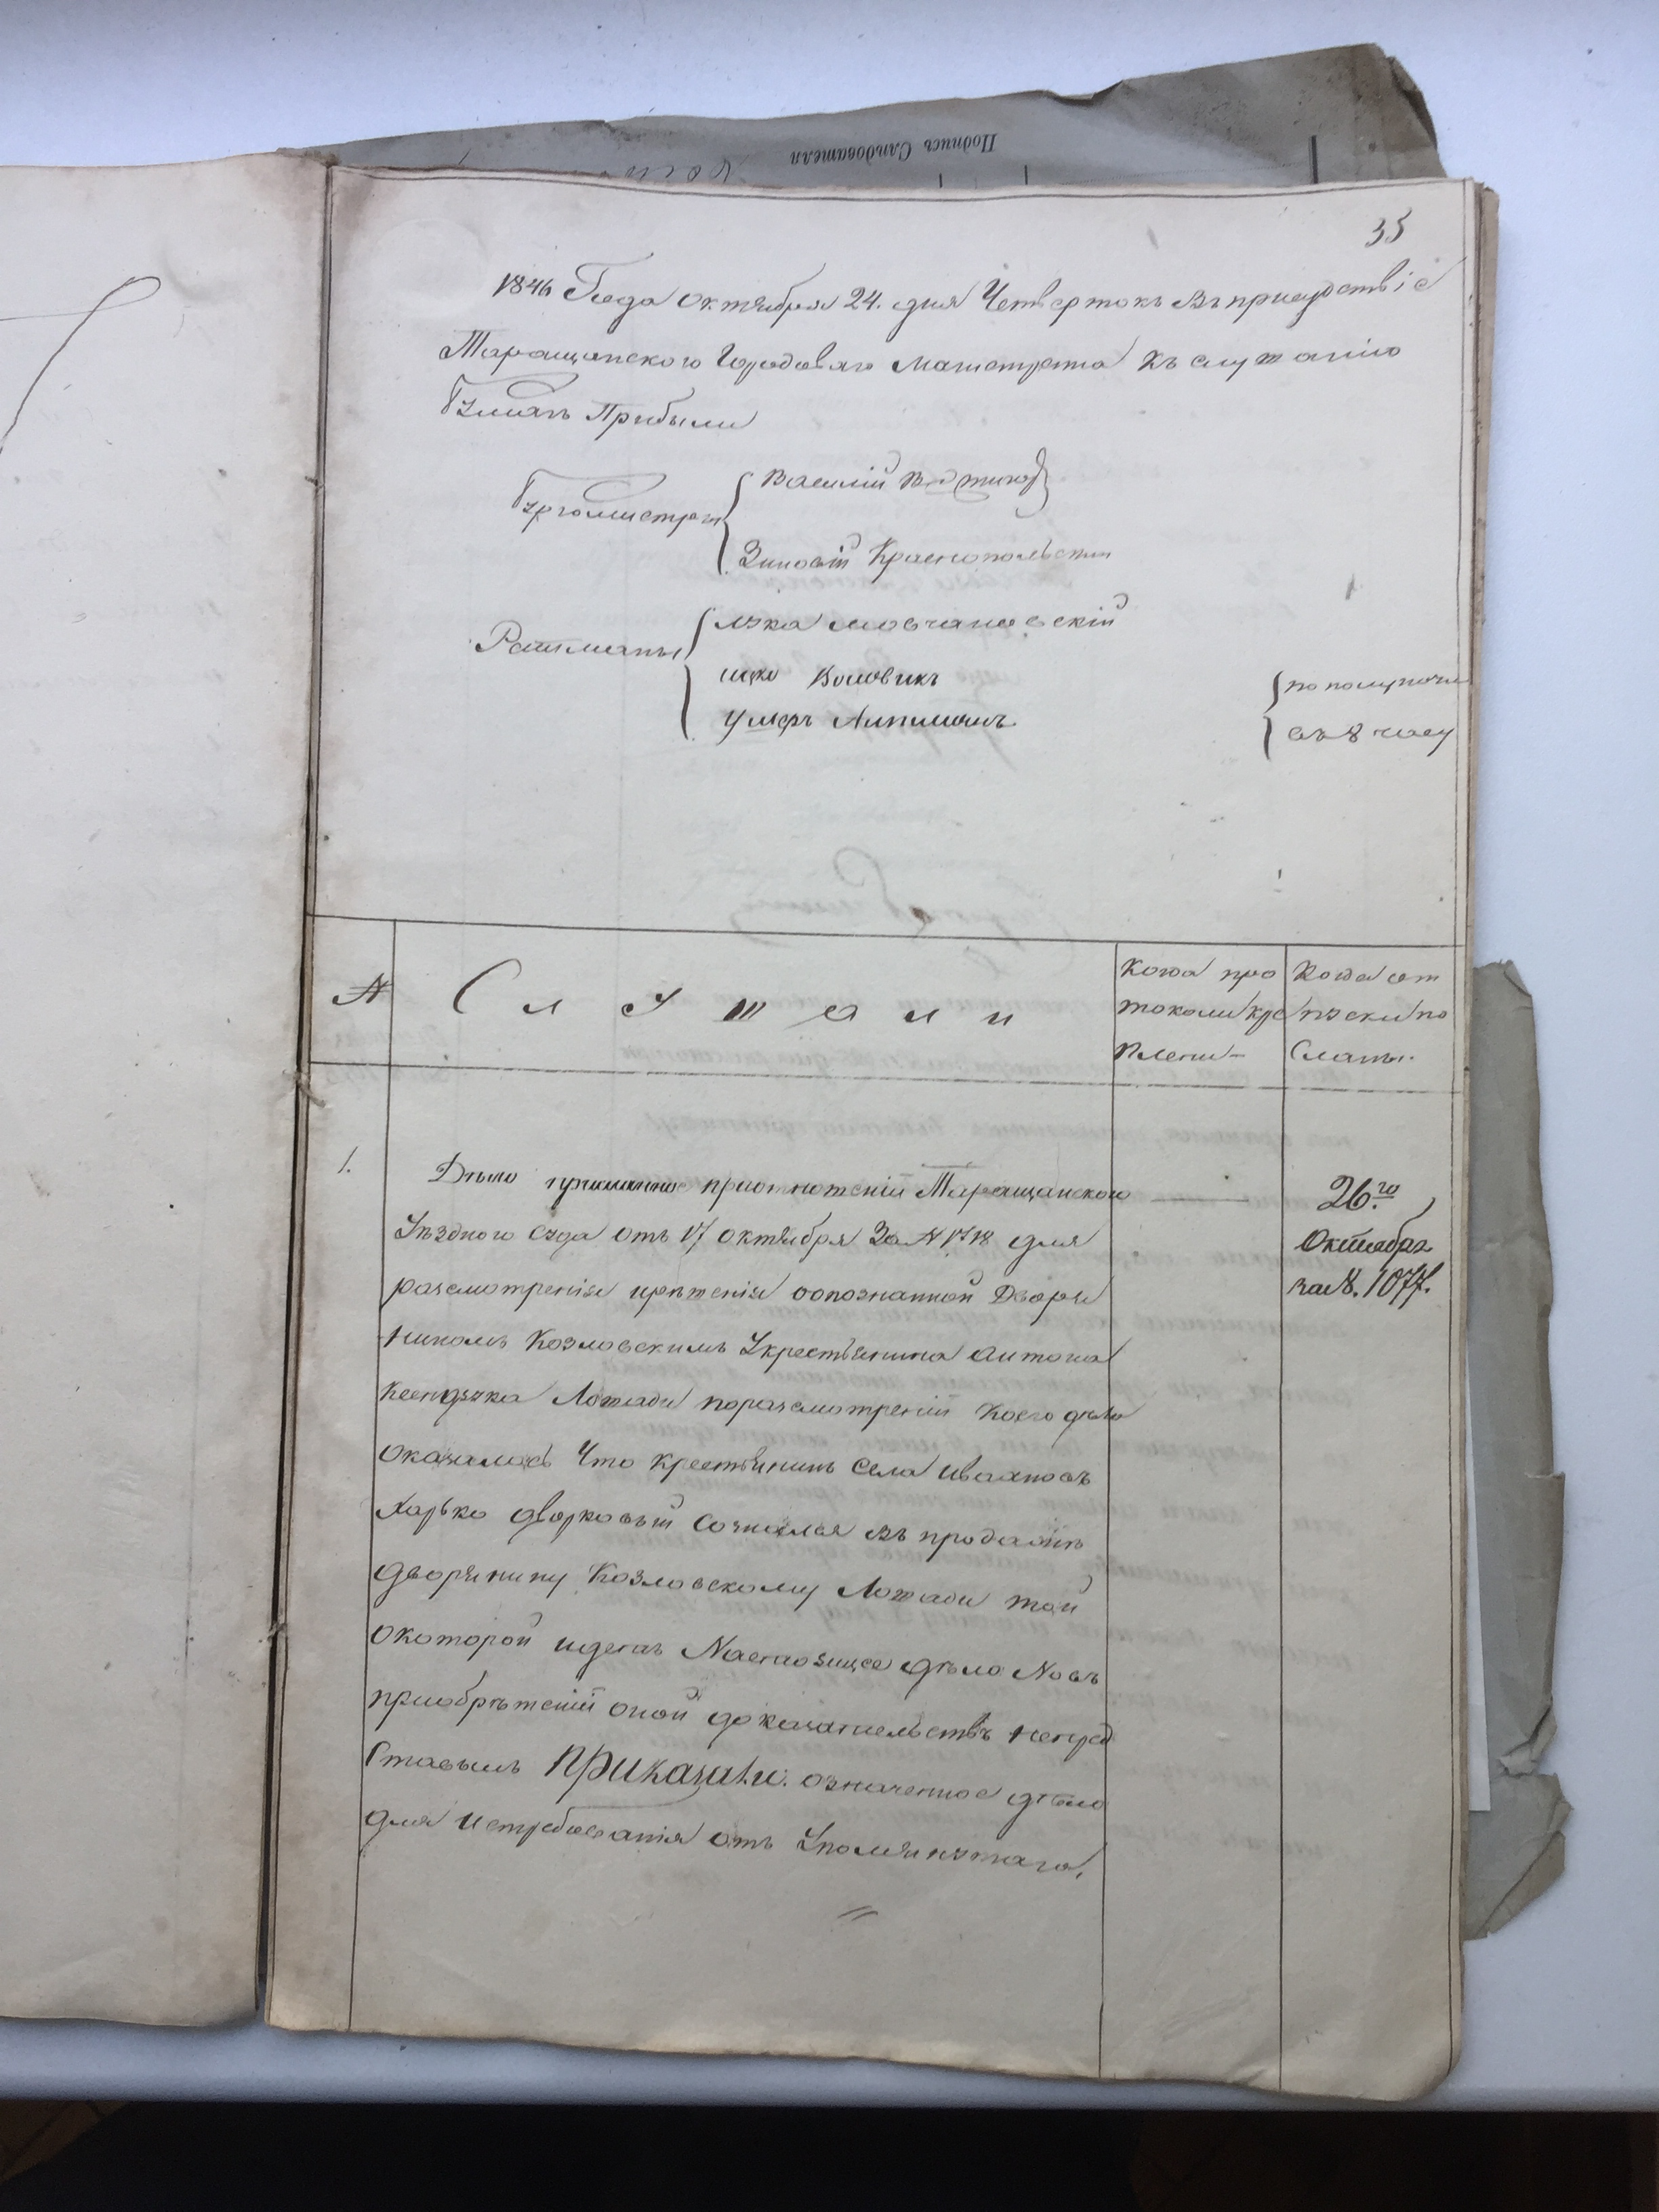 Подпись Слѣдователя
35
1846 Года октября 24. дня Четвертокъ въ присудствіе
Таращанского Городоваго Магистрата къ слушанію
Бумагъ Прибыли
Бургомистры
Василій
Зиновій Краснопольскии
Ратманы
Лука Мовчановскій
ицко Воловикъ
Умеръ Алтманъ
по полуночи
въ 8 часу
№
Слушали
Когда про
токолы кре
плены
Когда от
пуски по
сланы.
1.
Дѣло присланное приотношеніи Таращанского
Уѣздного суда отъ 17 октября За № 1718 для
разсмотренія ирѣшенія оопознанной Дворя
ниномъ Козловскимъ Укрестьянина Антона
Ксендзука Лошади поразсмотреніи коего дѣла
оказалось Что крестьянинъ Села Ивановъ
Харько дворковый Сознался въ продажѣ
дворянину Козловскому Лошади той
окоторой идетъ Настоящее дѣло Новъ
приобрѣтеніи оной доказательствъ непред
ставылъ Приказали: означенное дѣло
для истребованія отъ Упомянутаго,
26.го
Октября
за №. 1077.